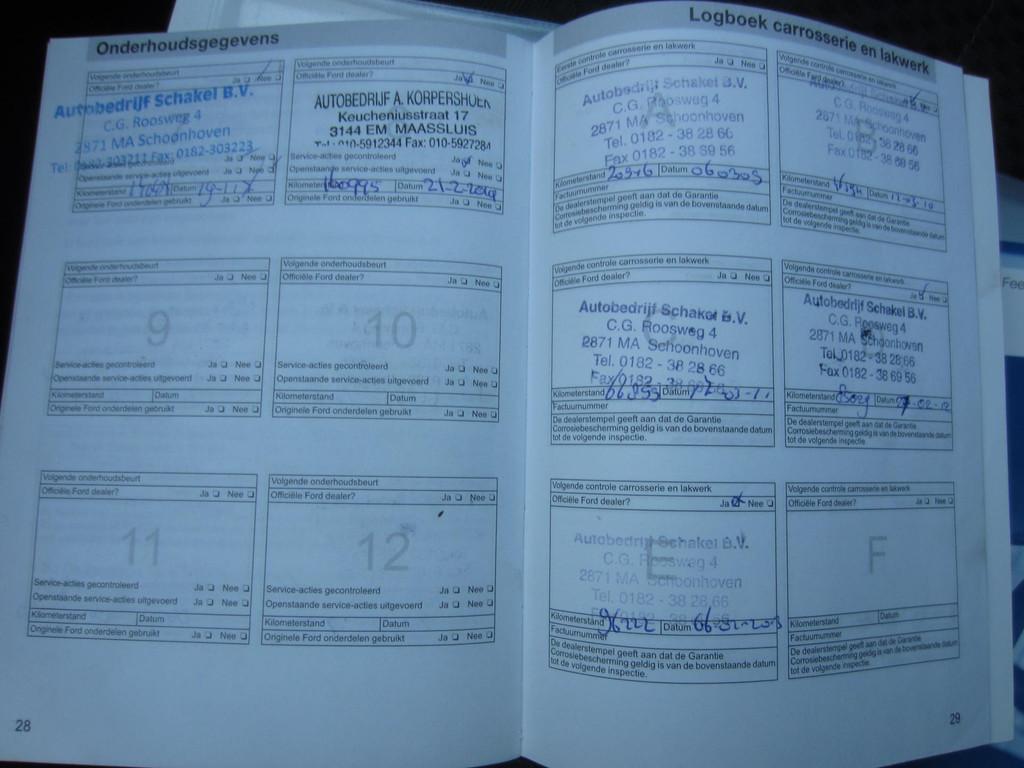 Onderhoudsgegevens
Volgende onderhoudsbeurt
Officiële Ford dealer? Ja Nee
Autobedrijf Schakel B.V.
C.G. Roosweg 4
2871 MA Schoonhoven
Tel: 0182-303211 Fax: 0182-303223
Openstaande service-acties uitgevoerd Ja Nee
Kilometerstand Datum
Originele Ford onderdelen gebruikt Ja Nee
Volgende onderhoudsbeurt
Officiële Ford dealer? Ja Nee
AUTOBEDRIJF A. KORPERSHOEK
Keucheniusstraat 17
3144 EM MAASSLUIS
Tel: 010-5912344 Fax: 010-5927284
Service-acties gecontroleerd Ja Nee
Openstaande service-acties uitgevoerd Ja Nee
Kilometerstand 160995 Datum 21-2-2014
Originele Ford onderdelen gebruikt Ja Nee
Volgende onderhoudsbeurt
Officiële Ford dealer? Ja Nee
9
Service-acties gecontroleerd Ja Nee
Openstaande service-acties uitgevoerd Ja Nee
Kilometerstand Datum
Originele Ford onderdelen gebruikt Ja Nee
Volgende onderhoudsbeurt
Officiële Ford dealer? Ja Nee
10
Service-acties gecontroleerd Ja Nee
Openstaande service-acties uitgevoerd Ja Nee
Kilometerstand Datum
Originele Ford onderdelen gebruikt Ja Nee
Volgende onderhoudsbeurt
Officiële Ford dealer? Ja Nee
11
Service-acties gecontroleerd Ja Nee
Openstaande service-acties uitgevoerd Ja Nee
Kilometerstand Datum
Originele Ford onderdelen gebruikt Ja Nee
Volgende onderhoudsbeurt
Officiële Ford dealer? Ja Nee
12
Service-acties gecontroleerd Ja Nee
Openstaande service-acties uitgevoerd Ja Nee
Kilometerstand Datum
Originele Ford onderdelen gebruikt Ja Nee
28
Logboek carrosserie en lakwerk
Eerste controle carrosserie en lakwerk
Officiële Ford dealer? Ja Nee
Autobedrijf Schakel B.V.
C.G. Roosweg 4
2871 MA Schoonhoven
Tel. 0182 - 38 28 66
Fax 0182 - 38 69 56
Kilometerstand Datum 060309
Factuurnummer
De dealerstempel geeft aan dat de Garantie
Corrosiebescherming geldig is van bovenstaande datum
tot de volgende inspectie.
Volgende controle carrosserie en lakwerk
Officiële Ford dealer? Ja Nee
Autobedrijf Schakel B.V.
C.G. Roosweg 4
2871 MA Schoonhoven
Tel. 0182 - 38 28 66
Fax 0182 - 38 69 56
Kilometerstand Datum 12-03-10
Factuurnummer
De dealerstempel geeft aan dat de Garantie
Corrosiebescherming geldig is van bovenstaande datum
tot de volgende inspectie.
Volgende controle carrosserie en lakwerk
Officiële Ford dealer? Ja Nee
Autobedrijf Schakel B.V.
C.G. Roosweg 4
2871 MA Schoonhoven
Tel. 0182 - 38 28 66
Fax 0182 - 38 69 56
Kilometerstand Datum
Factuurnummer
De dealerstempel geeft aan dat de Garantie
Corrosiebescherming geldig is van bovenstaande datum
tot de volgende inspectie.
Volgende controle carrosserie en lakwerk
Officiële Ford dealer? Ja Nee
Autobedrijf Schakel B.V.
C.G. Roosweg 4
2871 MA Schoonhoven
Tel. 0182 - 38 28 66
Fax 0182 - 38 69 56
Kilometerstand Datum
Factuurnummer
De dealerstempel geeft aan dat de Garantie
Corrosiebescherming geldig is van bovenstaande datum
tot de volgende inspectie.
Volgende controle carrosserie en lakwerk
Officiële Ford dealer? Ja Nee
E
Autobedrijf Schakel B.V.
C.G. Roosweg 4
2871 MA Schoonhoven
Tel. 0182 - 38 28 66
Kilometerstand 96222 Datum
Factuurnummer
De dealerstempel geeft aan dat de Garantie
Corrosiebescherming geldig is van bovenstaande datum
tot de volgende inspectie.
Volgende controle carrosserie en lakwerk
Officiële Ford dealer? Ja Nee
F
Kilometerstand Datum
Factuurnummer
De dealerstempel geeft aan dat de Garantie
Corrosiebescherming geldig is van bovenstaande datum
tot de volgende inspectie.
29
Fee